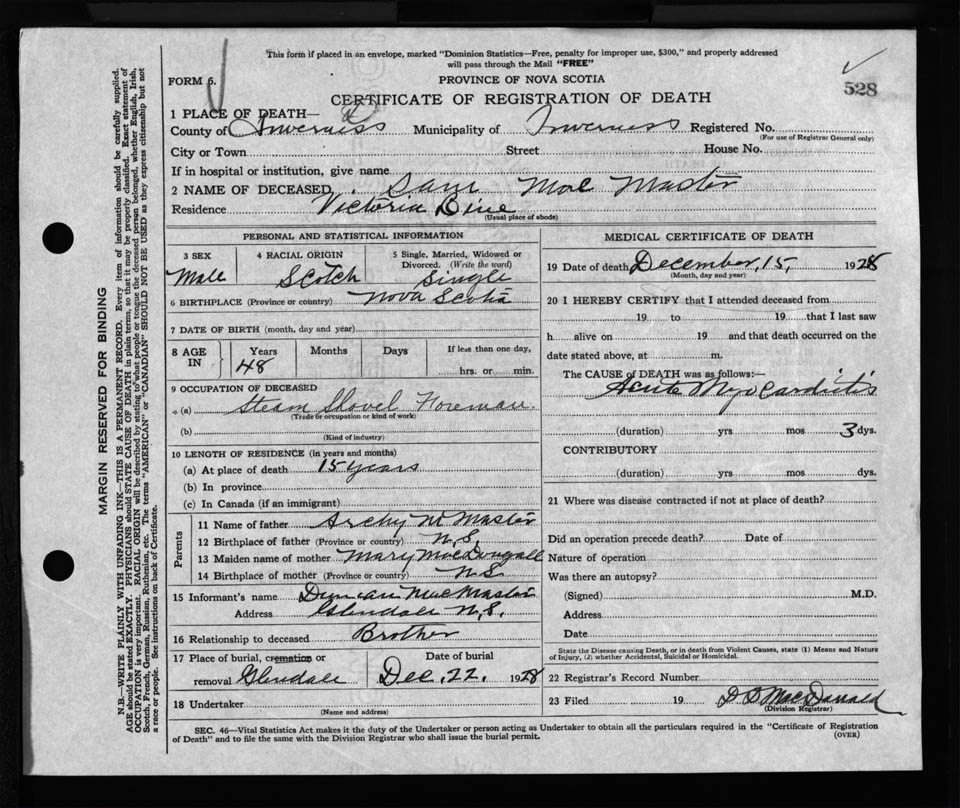 This form if placed in an envelope, marked "Dominion Statistics—Free, penalty for improper use, $300," and properly addressed
will pass through the Mail "FREE"
FORM 6.
PROVINCE OF NOVA SCOTIA
528
CERTIFICATE OF REGISTRATION OF DEATH
1 PLACE OF DEATH—
County of Inverness Municipality of Inverness Registered No.
(For use of Registrar General only)
City or Town Street House No.
If in hospital or institution, give name
2 NAME OF DECEASED Sam MacMaster
Residence Victoria Line
(Usual place of abode)
PERSONAL AND STATISTICAL INFORMATION
3 SEX 4 RACIAL ORIGIN 5 Single, Married, Widowed or
Divorced. (Write the word)
Male Scotch Single
6 BIRTHPLACE (Province or country) Nova Scotia
7 DATE OF BIRTH (month, day and year)
8 AGE IN Years Months Days If less than one day,
48 hrs. or min.
9 OCCUPATION OF DECEASED
(a) Steam Shovel Foreman.
(Trade or occupation or kind of work)
(b)
(Kind of industry)
10 LENGTH OF RESIDENCE (in years and months)
(a) At place of death 15 years
(b) In province
(c) In Canada (if an immigrant)
Parents
11 Name of father Archy McMaster
12 Birthplace of father (Province or country) N.S.
13 Maiden name of mother Mary MacDougall
14 Birthplace of mother (Province or country) N.S.
15 Informant's name Duncan MacMaster
Address Glendale N.S.
16 Relationship to deceased Brother
17 Place of burial, cremation or Date of burial
removal Glendale Dec. 22. 1928
18 Undertaker
(Name and address)
MEDICAL CERTIFICATE OF DEATH
19 Date of death December, 15, 1928
(Month, day and year)
20 I HEREBY CERTIFY that I attended deceased from
19 to 19 that I last saw
h alive on 19 and that death occurred on the
date stated above, at m.
The CAUSE OF DEATH was as follows:—
Acute Myocarditis
(duration) yrs mos 3 dys.
CONTRIBUTORY
(duration) yrs mos dys.
21 Where was disease contracted if not at place of death?
Did an operation precede death? Date of
Nature of operation
Was there an autopsy?
(Signed) M.D.
Address
Date
State the Disease causing Death, or in death from Violent Causes, state (1) Means and Nature
of Injury, (2) whether Accidental, Suicidal or Homicidal.
22 Registrar's Record Number
23 Filed 19 MacDonald
(Division Registrar)
SEC. 46—Vital Statistics Act makes it the duty of the Undertaker or person acting as Undertaker to obtain all the particulars required in the "Certificate of Registration
of Death" and to file the same with the Division Registrar who shall issue the burial permit.
(OVER)
MARGIN RESERVED FOR BINDING
N.B.—WRITE PLAINLY WITH UNFADING INK—THIS IS A PERMANENT RECORD. Every item of information should be carefully supplied.
AGE should be stated EXACTLY. PHYSICIANS should STATE CAUSE OF DEATH in plain terms, so that it may be properly classified. Exact statement of
OCCUPATION is very important. RACIAL ORIGIN will be described by stating to what people or tongue the deceased person belonged, whether English, Irish,
Scotch, French, German, Russian, Ruthenian, etc. The terms "AMERICAN" or "CANADIAN" SHOULD NOT BE USED as they express citizenship but not
a race or people. See instructions on back of Certificate.